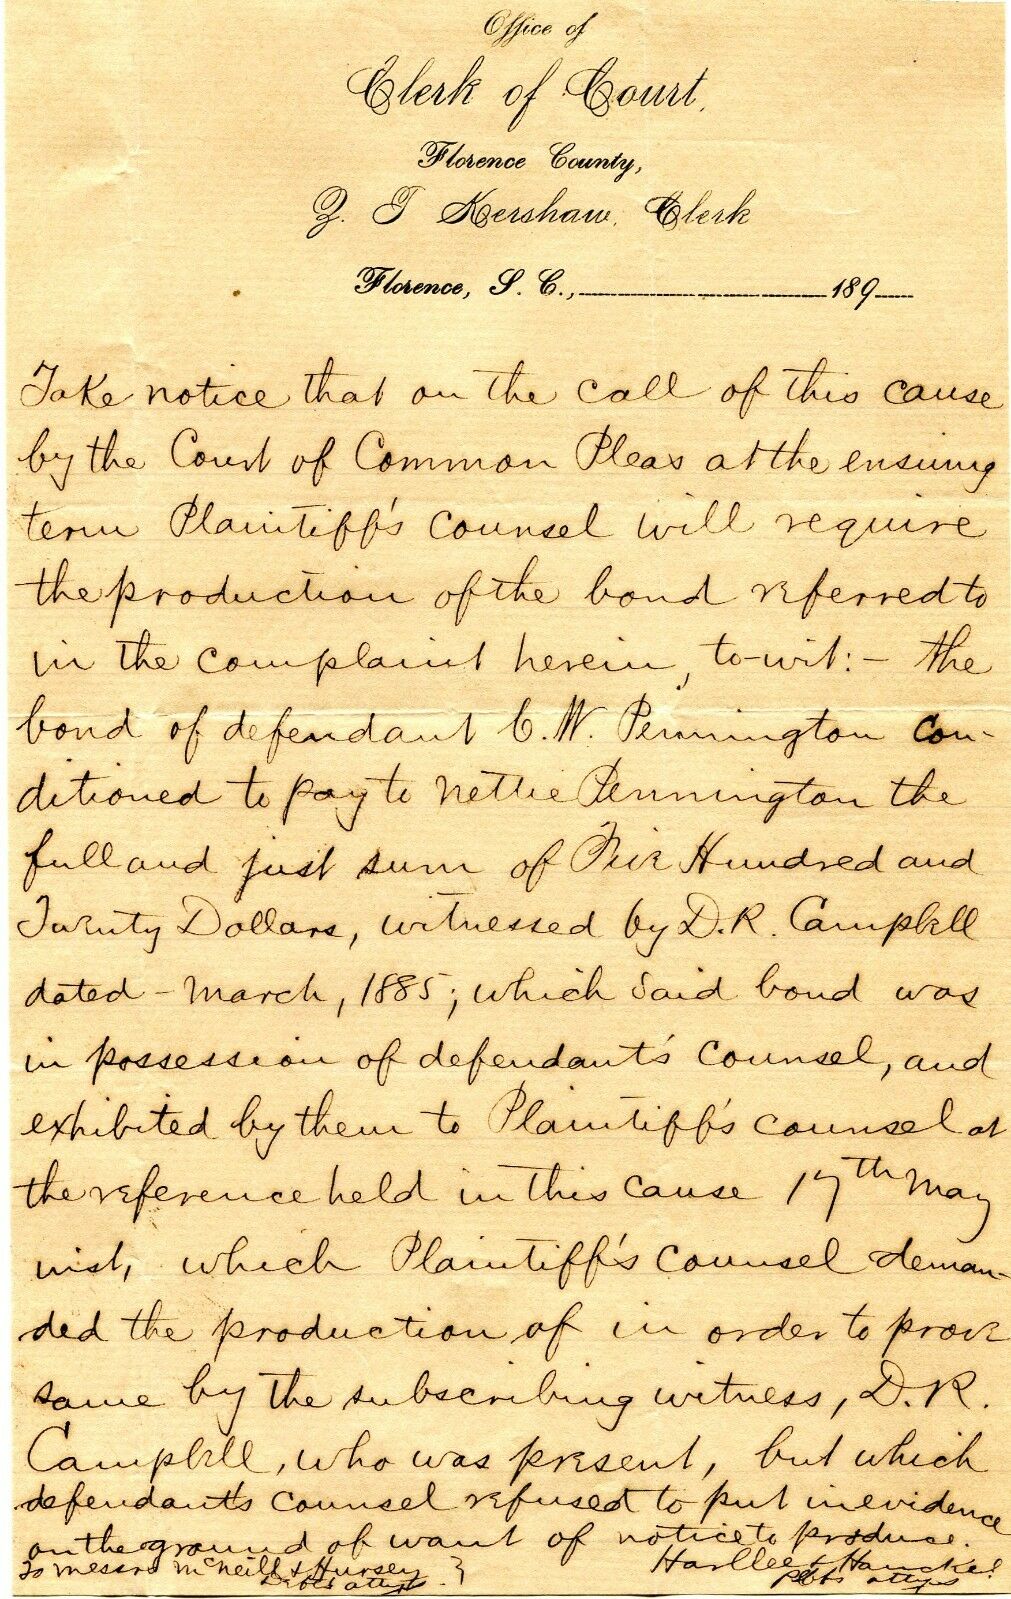 Office of
Clerk of Court,
Florence County,
Z. T Kershaw, Clerk
Florence, S. C., 189
Take notice that on the call of this cause
by the Court of Common Pleas at the ensuing
term Plaintiff's counsel will require
the production of the bond referred to
in the complaint herein, to-wit:- the
bond of defendant C. W. Pennington con-
ditioned to pay to Nettie Pennington the
full and just sum of Five Hundred and
Twenty Dollars, witnessed by D. R. Campbell
dated - March, 1885; which said bond was
in possession of defendant's counsel, and
exhibited by them to Plaintiff's counsel at
the reference held in this cause 17th May
inst, which Plaintiff's counsel deman-
ded the production of in order to prove
same by the subscribing witness, D. R.
Campbell, who was present, but which
defendant's counsel refused to put in evidence
on the ground of want of notice to produce.
To Messrs McNeill & Hursey } Harllee &
Defts attys. Plffs attys